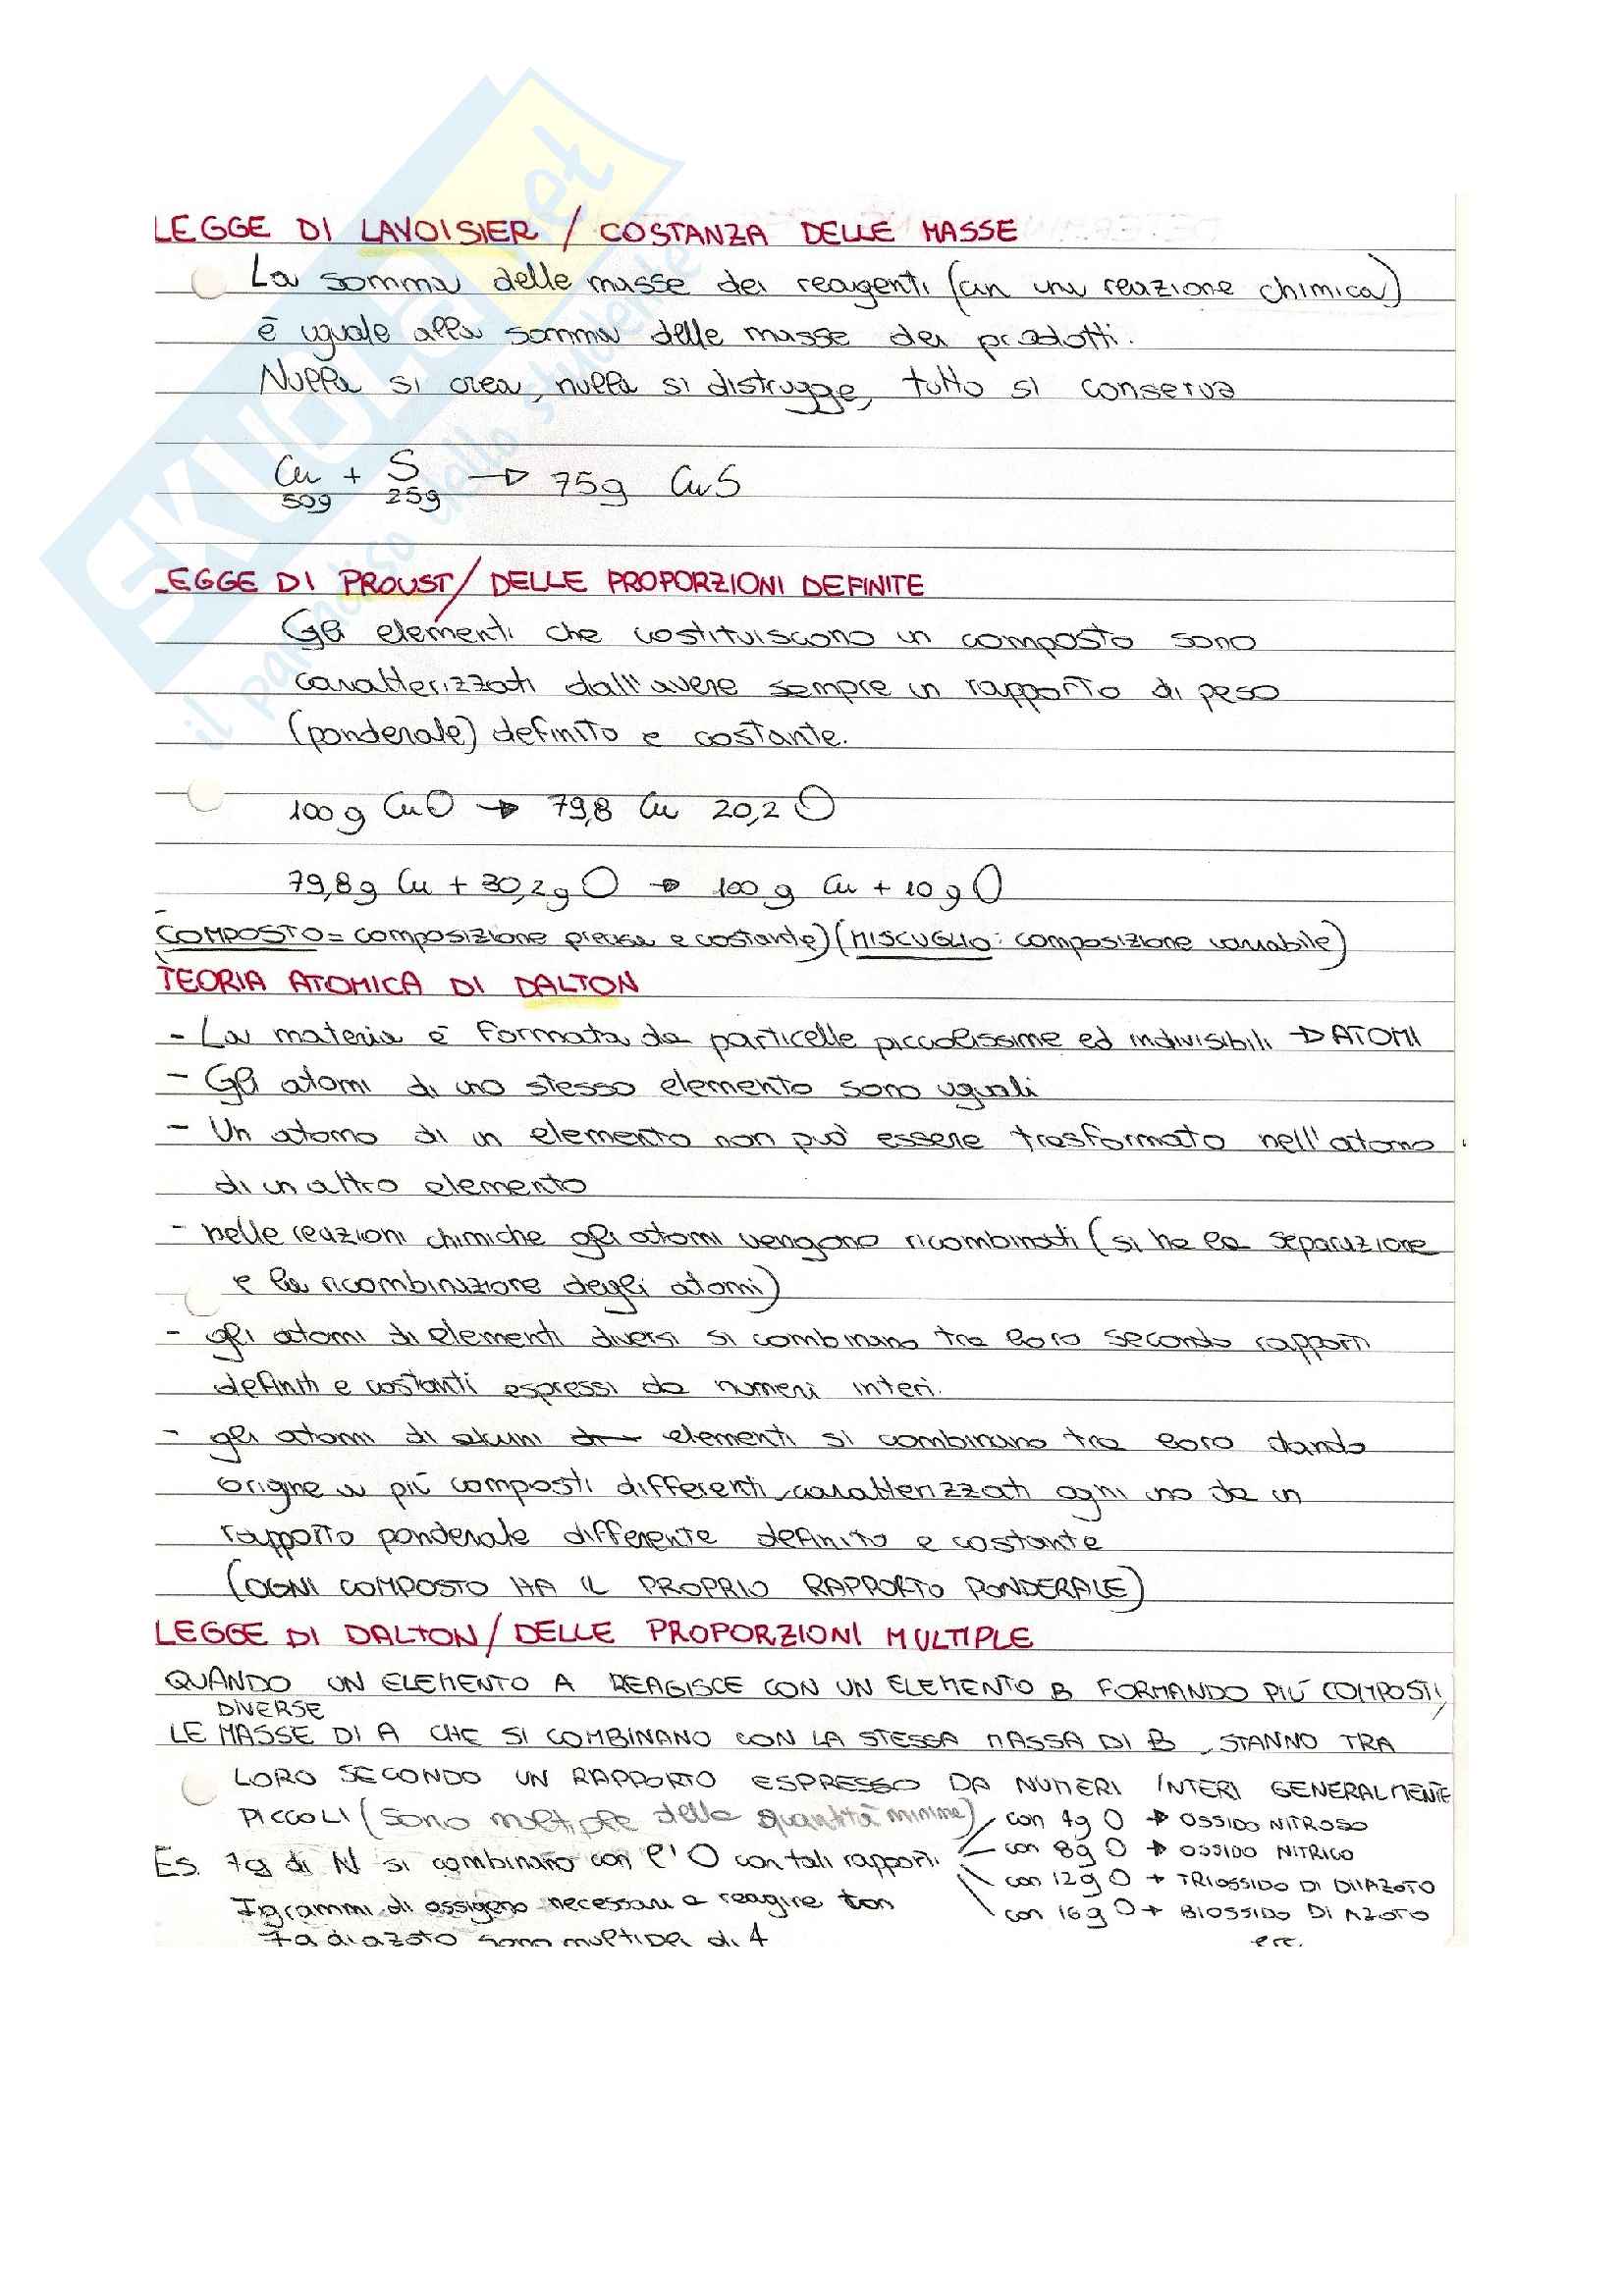 LEGGE DI LAVOISIER / COSTANZA DELLE MASSE
La somma delle masse dei reagenti (in una reazione chimica)
è uguale alla somma delle masse dei prodotti.
Nulla si crea, nulla si distrugge, tutto si conserva
Cu + S → 75g CuS
50g 25g
LEGGE DI PROUST / DELLE PROPORZIONI DEFINITE
Gli elementi che costituiscono un composto sono
caratterizzati dall'avere sempre un rapporto di peso
(ponderale) definito e costante.
100 g CuO → 79,8 Cu 20,2 O
79,8g Cu + 30,2g O → 100 g Cu + 10 g O
COMPOSTO = composizione precisa e costante) (MISCUGLIO: composizione variabile)
TEORIA ATOMICA DI DALTON
- La materia è formata da particelle piccolissime ed indivisibili → ATOMI
- Gli atomi di uno stesso elemento sono uguali
- Un atomo di un elemento non può essere trasformato nell'atomo
di un altro elemento
- nelle reazioni chimiche gli atomi vengono ricombinati (si ha la separazione
e la ricombinazione degli atomi)
- gli atomi di elementi diversi si combinano tra loro secondo rapporti
definiti e costanti espressi da numeri interi.
- gli atomi di alcuni elementi si combinano tra loro dando
origine a più composti differenti, caratterizzati ogni uno da un
rapporto ponderale differente definito e costante
(OGNI COMPOSTO HA IL PROPRIO RAPPORTO PONDERALE)
LEGGE DI DALTON / DELLE PROPORZIONI MULTIPLE
QUANDO UN ELEMENTO A REAGISCE CON UN ELEMENTO B FORMANDO PIÙ COMPOSTI,
DIVERSE
LE MASSE DI A CHE SI COMBINANO CON LA STESSA MASSA DI B, STANNO TRA
LORO SECONDO UN RAPPORTO ESPRESSO DA NUMERI INTERI GENERALMENTE
PICCOLI (sono multiple della quantità minima)
con 4g O → OSSIDO NITROSO
Es. 7g di N si combinano con l'O con tali rapporti.
con 8g O → OSSIDO NITRICO
con 12g O → TRIOSSIDO DI DIIAZOTO
I grammi di ossigeno necessari a reagire con
con 16g O → BIOSSIDO DI AZOTO
7g di azoto sono multipli di 4
ecc.
SKUOLA.net
il paradiso dello studente